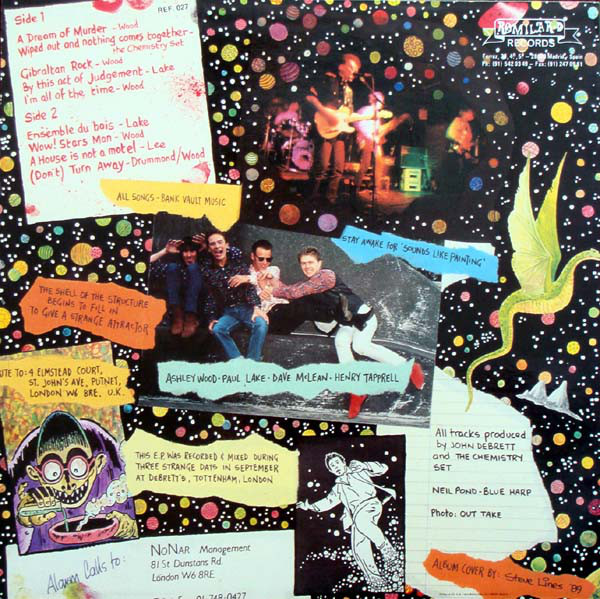 Side 1
REF. 027
A Dream of Murder - Wood
Wiped out and nothing comes together -
the Chemistry Set
Gibraltan Rock - Wood
By this act of Judgement - Lake
I'm all of the time - Wood
Side 2
Ensemble du bois - Lake
Wow! Stars Man - Wood
A House is not a motel - Lee
(Don't) Turn Away - Drummond/Wood
ROMILAR-D
RECORDS
Madrid, Spain
ALL SONGS - BANK VAULT MUSIC
STAY AWAKE FOR 'SOUNDS LIKE PAINTING'
THE SHELL OF THE STRUCTURE
BEGINS TO FILL IN
TO GIVE A STRANGE ATTRACTOR
ASHLEY WOOD - PAUL LAKE - DAVE McLEAN - HENRY TAPPRELL
TO: 4 ELMSTEAD COURT,
ST. JOHN'S AVE, PUTNEY,
LONDON W6 8RE, U.K.
THIS E.P. WAS RECORDED & MIXED DURING
THREE STRANGE DAYS IN SEPTEMBER
AT DEBRETT'S, TOTTENHAM, LONDON
All tracks produced
by JOHN DEBRETT
and THE CHEMISTRY
SET
NEIL POND - BLUE HARP
Photo: OUT TAKE
Alarm Calls to:
NoNAR Management
81 St Dunstans Rd.
London W6 8RE
01-748-0427
ALBUM COVER BY: Steve Lines '89